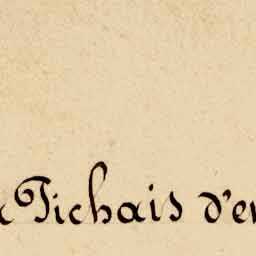 Tichais d'en